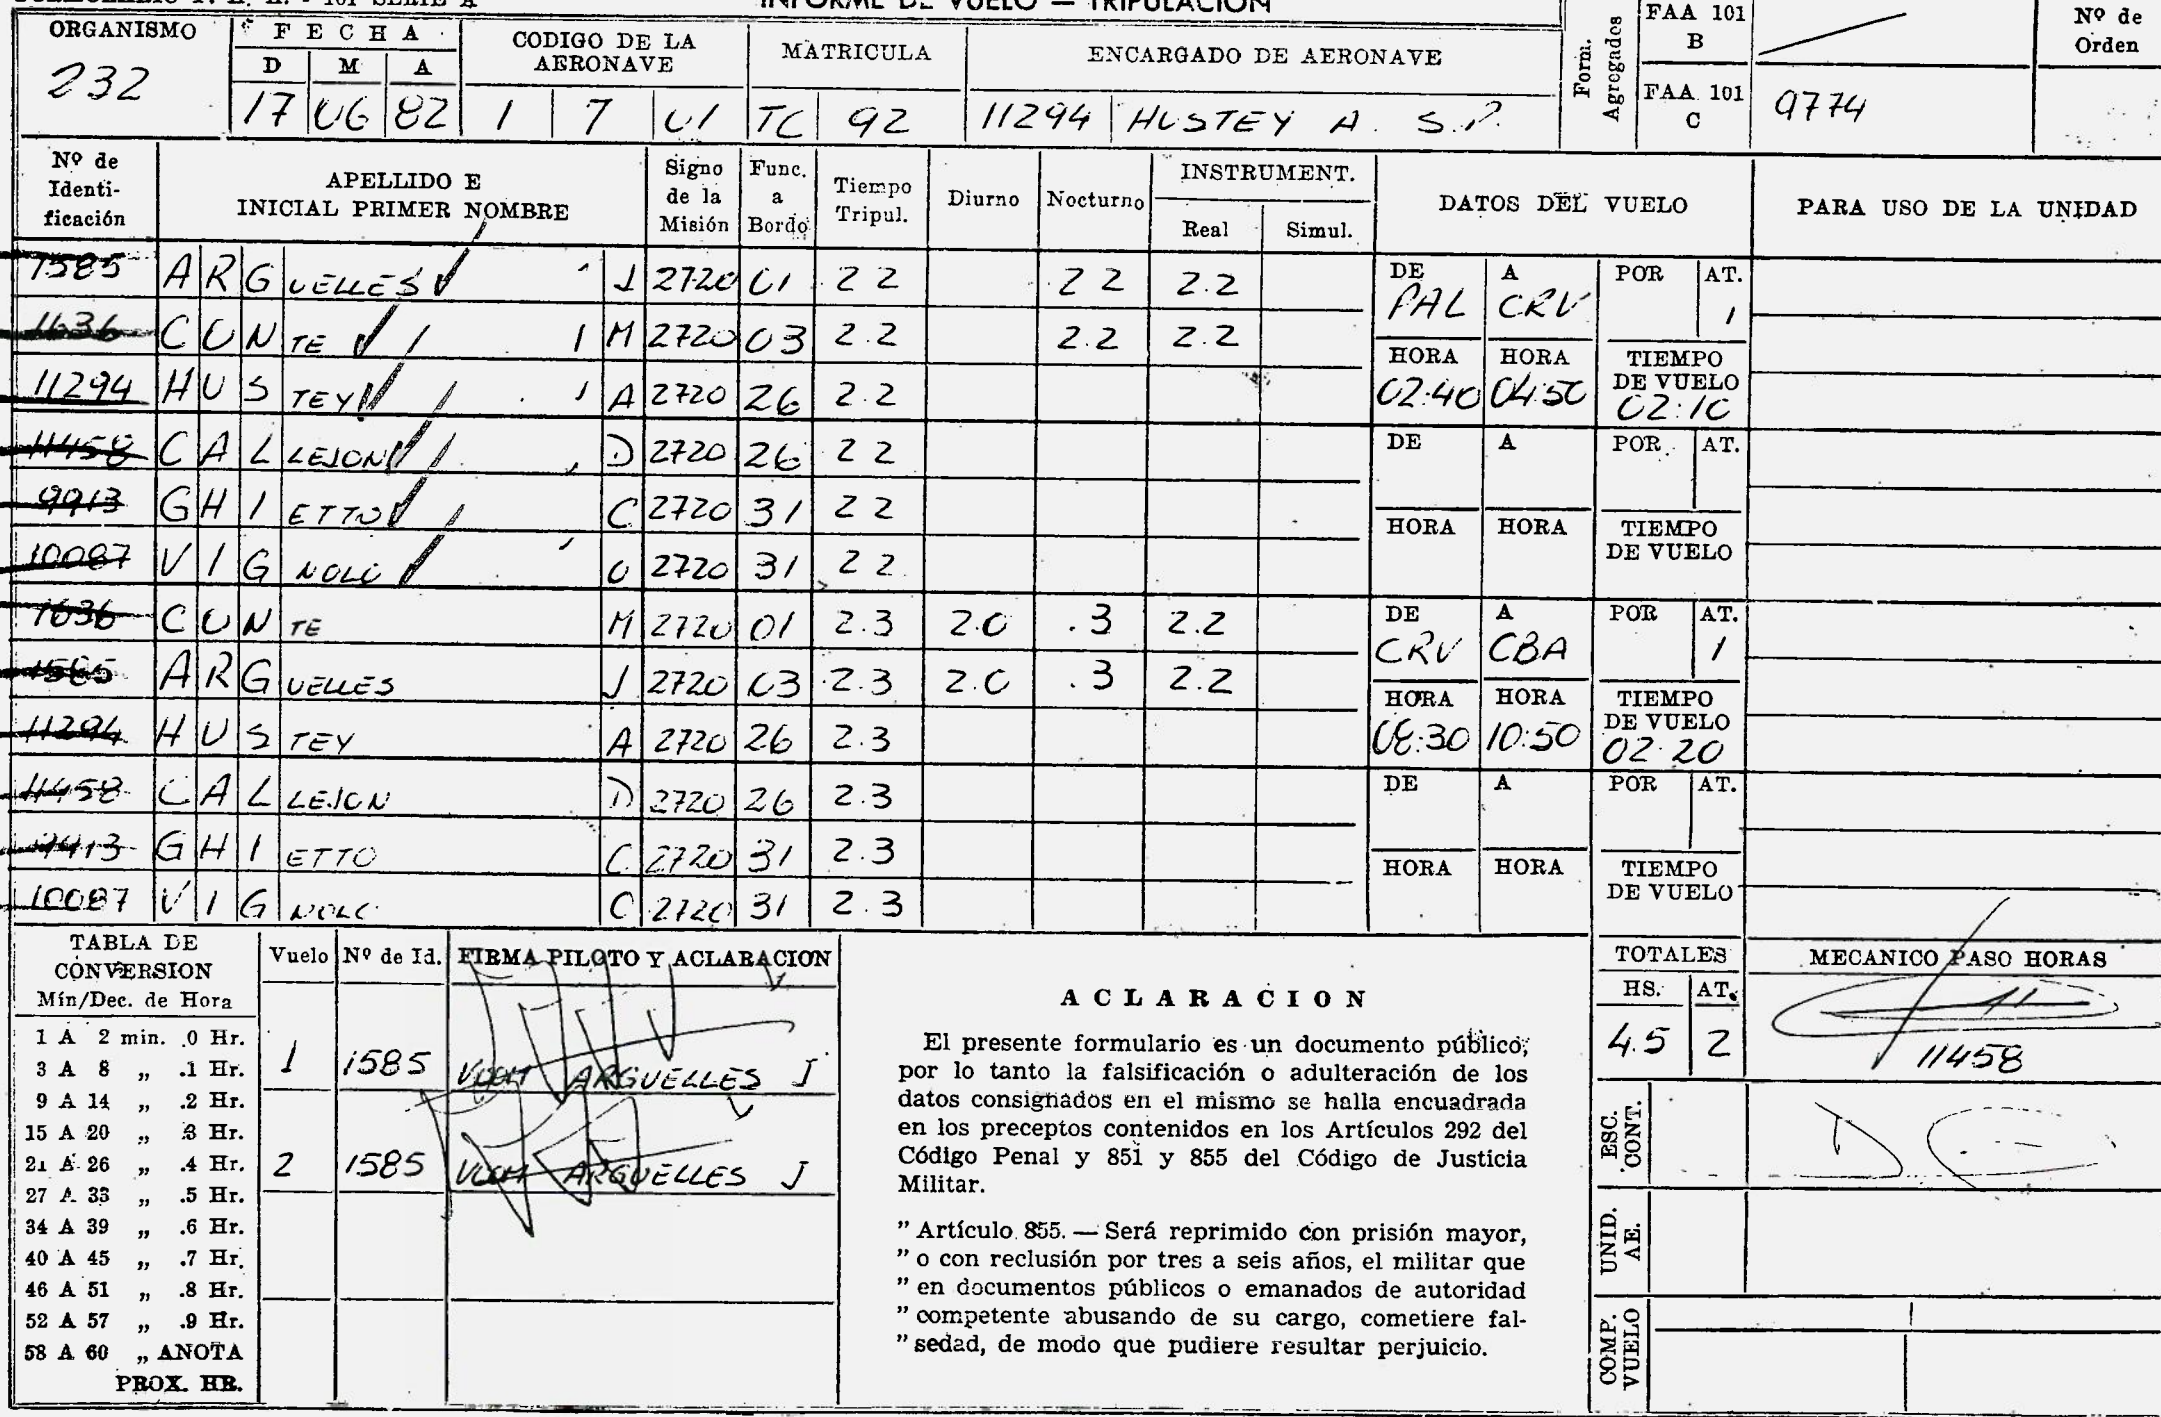 INFORME DE VUELO — TRIPULACION
ORGANISMO
232
FECHA
D M A
17 06 82
CODIGO DE LA AERONAVE
1 7 01
MATRICULA
TC 92
ENCARGADO DE AERONAVE
11294 HUSTEY A. S.P.
Form. Agregados
FAA 101 B
FAA 101 C
9774
Nº de Orden
Nº de Identificación
APELLIDO E INICIAL PRIMER NOMBRE
Signo de la Misión
Func. a Bordo
Tiempo Tripul.
Diurno
Nocturno
INSTRUMENT.
Real Simul.
DATOS DEL VUELO
PARA USO DE LA UNIDAD
1585 ARGUELLES J 2720 01 2 2 2 2 2.2
1636 CONTE M 2720 03 2.2 2.2 2.2
11294 HUSTEY A 2720 26 2.2
11458 CALLEJON D 2720 26 2 2
9913 GHIETTO C 2720 31 2 2
10087 VIGNOLO O 2720 31 2 2
1636 CONTE M 2720 01 2.3 2.0 .3 2.2
1585 ARGUELLES J 2720 03 2.3 2.0 .3 2.2
11294 HUSTEY A 2720 26 2.3
11458 CALLEJON D 2720 26 2.3
9913 GHIETTO C 2720 31 2.3
10087 VIGNOLO O 2720 31 2.3
DE A POR AT.
PAL CRV 1
HORA HORA TIEMPO DE VUELO
02:40 04:50 02:10
DE A POR AT.
HORA HORA TIEMPO DE VUELO
DE A POR AT.
CRV CBA 1
HORA HORA TIEMPO DE VUELO
08:30 10:50 02:20
DE A POR AT.
HORA HORA TIEMPO DE VUELO
TABLA DE CONVERSION
Mín/Dec. de Hora
1 A 2 min. .0 Hr.
3 A 8 „ .1 Hr.
9 A 14 „ .2 Hr.
15 A 20 „ .3 Hr.
21 A 26 „ .4 Hr.
27 A 33 „ .5 Hr.
34 A 39 „ .6 Hr.
40 A 45 „ .7 Hr.
46 A 51 „ .8 Hr.
52 A 57 „ .9 Hr.
58 A 60 „ ANOTA
PROX. HR.
Vuelo Nº de Id. FIRMA PILOTO Y ACLARACION
1 1585 ARGUELLES J
2 1585 ARGUELLES J
ACLARACION
El presente formulario es un documento público;
por lo tanto la falsificación o adulteración de los
datos consignados en el mismo se halla encuadrada
en los preceptos contenidos en los Artículos 292 del
Código Penal y 851 y 855 del Código de Justicia
Militar.
" Artículo 855. — Será reprimido con prisión mayor,
" o con reclusión por tres a seis años, el militar que
" en documentos públicos o emanados de autoridad
" competente abusando de su cargo, cometiere fal-
" sedad, de modo que pudiere resultar perjuicio.
TOTALES
HS. AT.
4.5 2
MECANICO PASO HORAS
11458
ESC. CONT.
UNID. AE.
COMP. VUELO